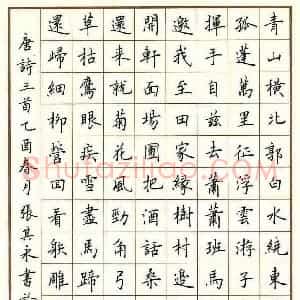 青山橫北郭白水繞東
孤蓬萬里征浮雲游子
揮手自茲去蕭蕭班馬
邀我至田家綠樹村邊
開軒面場圃把酒話桑
還来就菊花風勁角弓
草枯鷹眼疾雪盡馬蹄
還歸細柳營回看射雕
唐詩三首乙酉春月張其永書